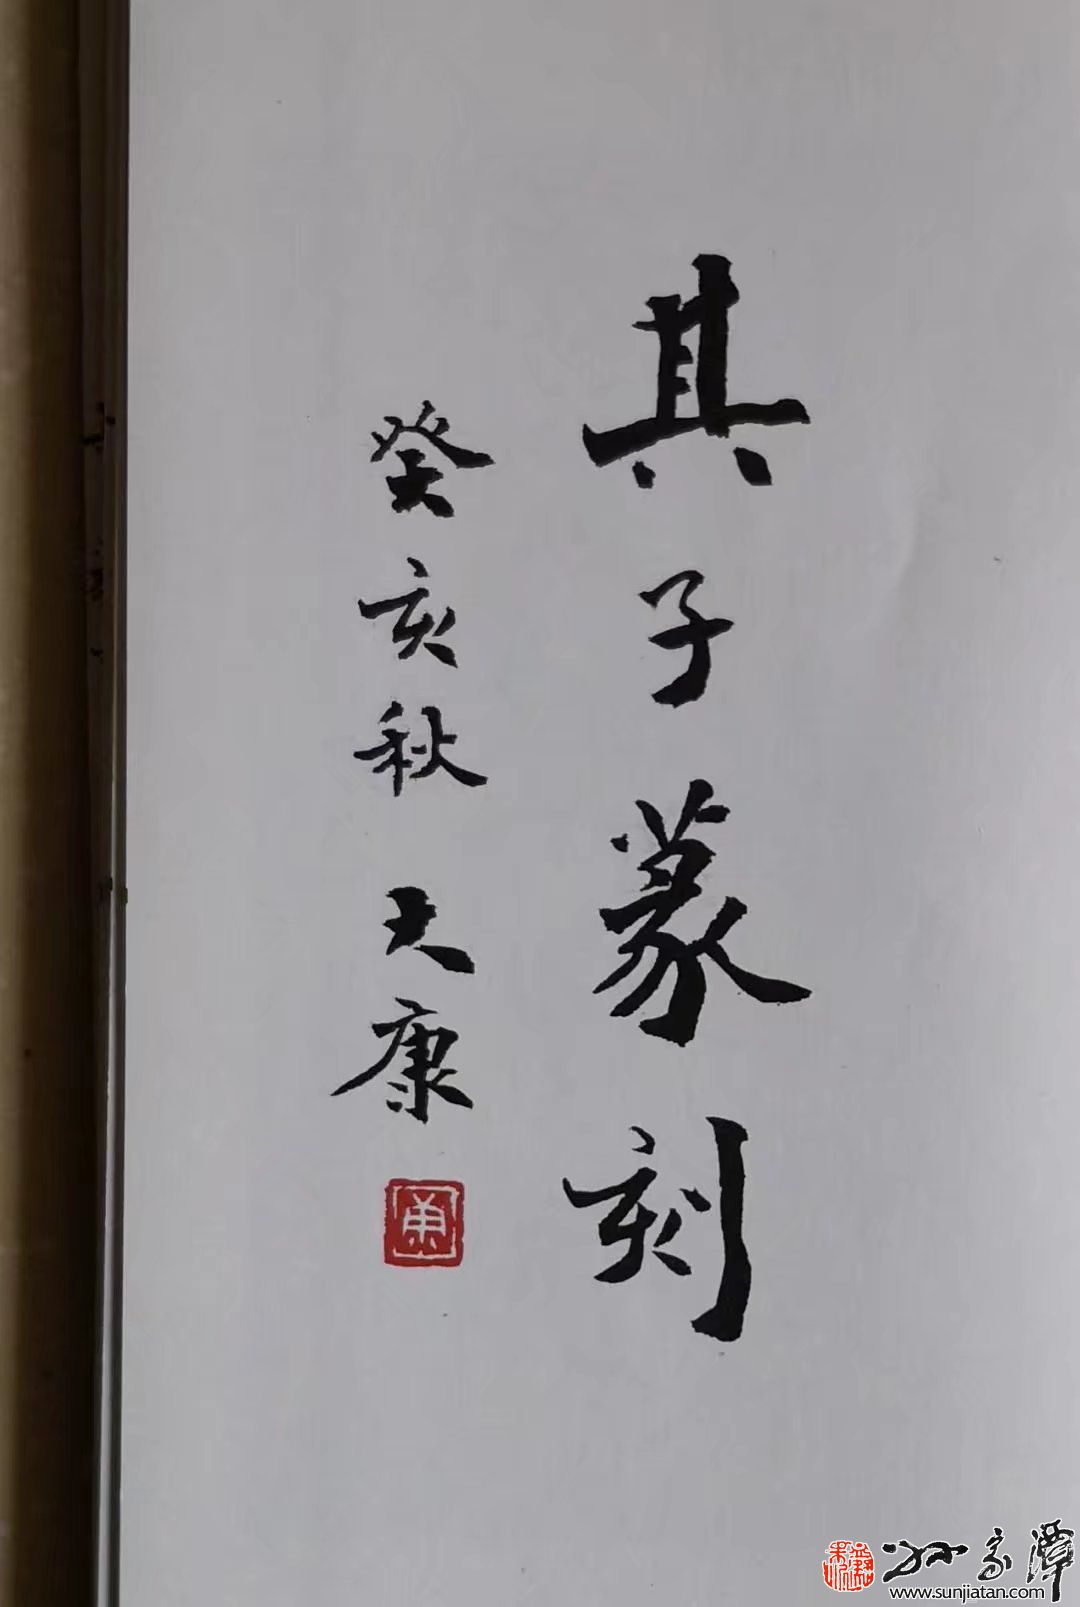 其子篆刻
癸亥秋 天康
康
孙家潭
www.sunjiatan.com